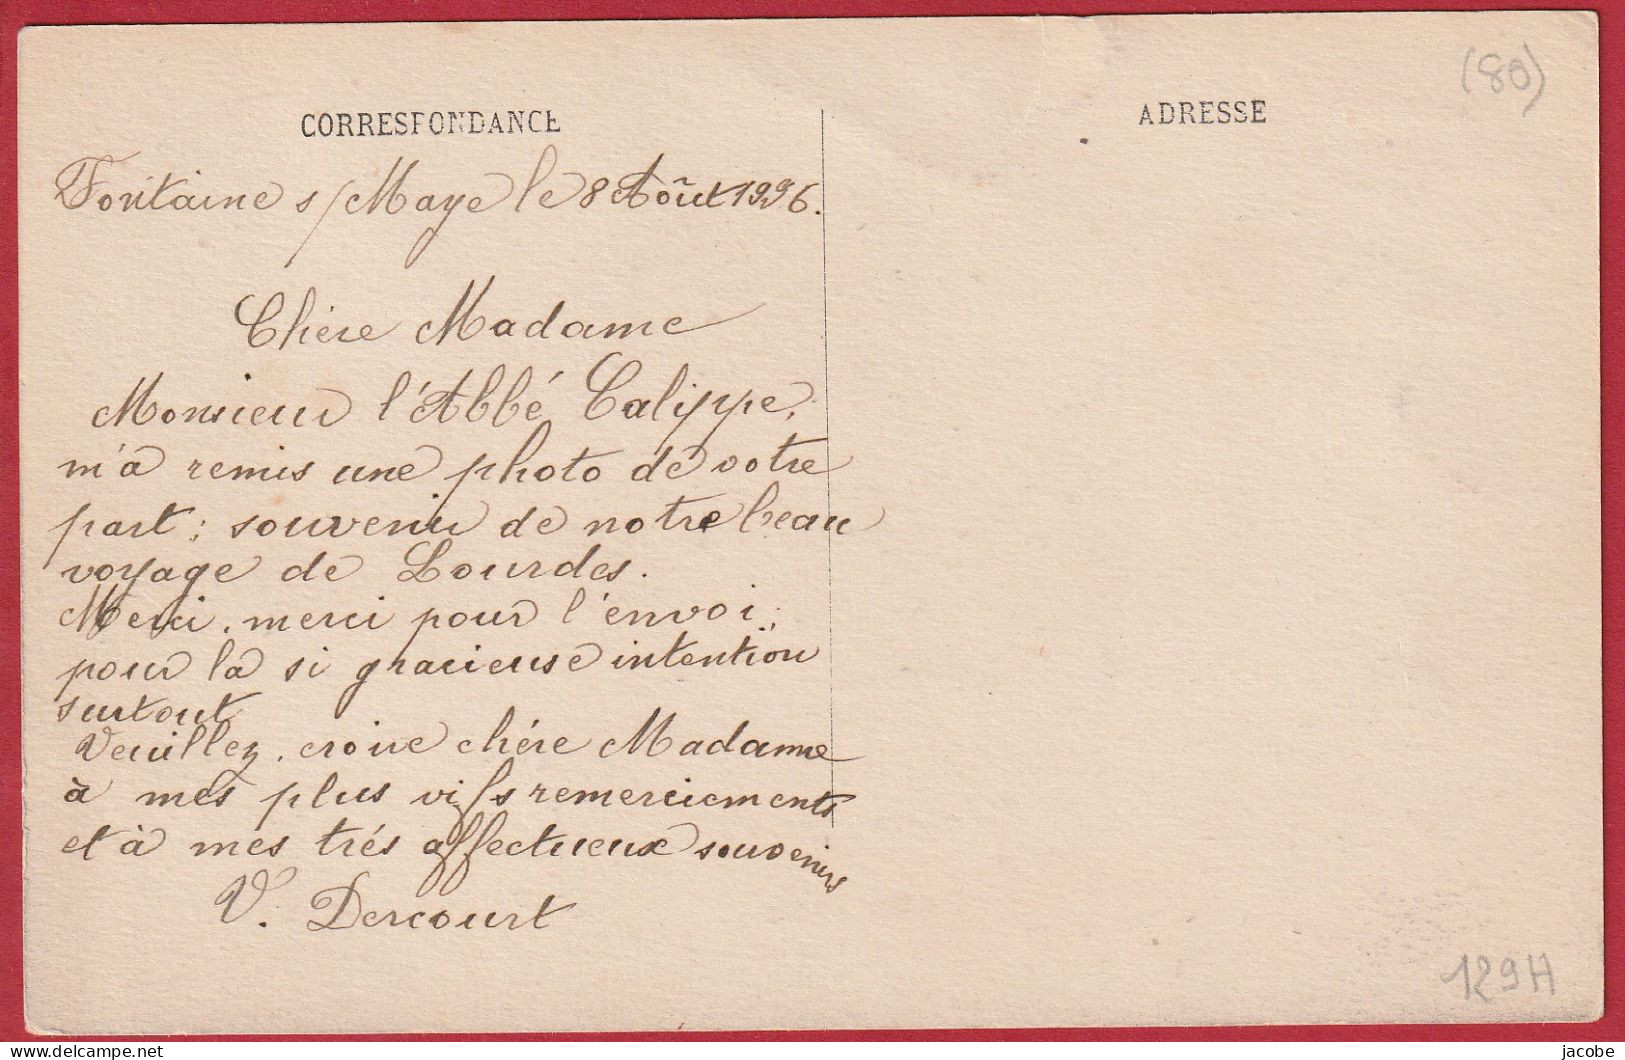 (80)
CORRESPONDANCE
ADRESSE
Fontaine s/Maye le 8 Août 1926.
Chère Madame
Monsieur l'Abbé Calippe,
m'a remis une photo de votre
part; souvenir de notre beau
voyage de Lourdes.
Merci, merci pour l'envoi;
pour la si gracieuse intention
surtout
Veuillez, croire chère Madame
à mes plus vifs remerciements
et à mes trés affectueux souvenirs
V. Dercourt
129H
delcampe.net
jacobe